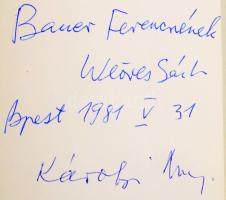 Bauer Ferencnének
Weöres Sándor
Bpest 1981 V 31
Károlyi Amy